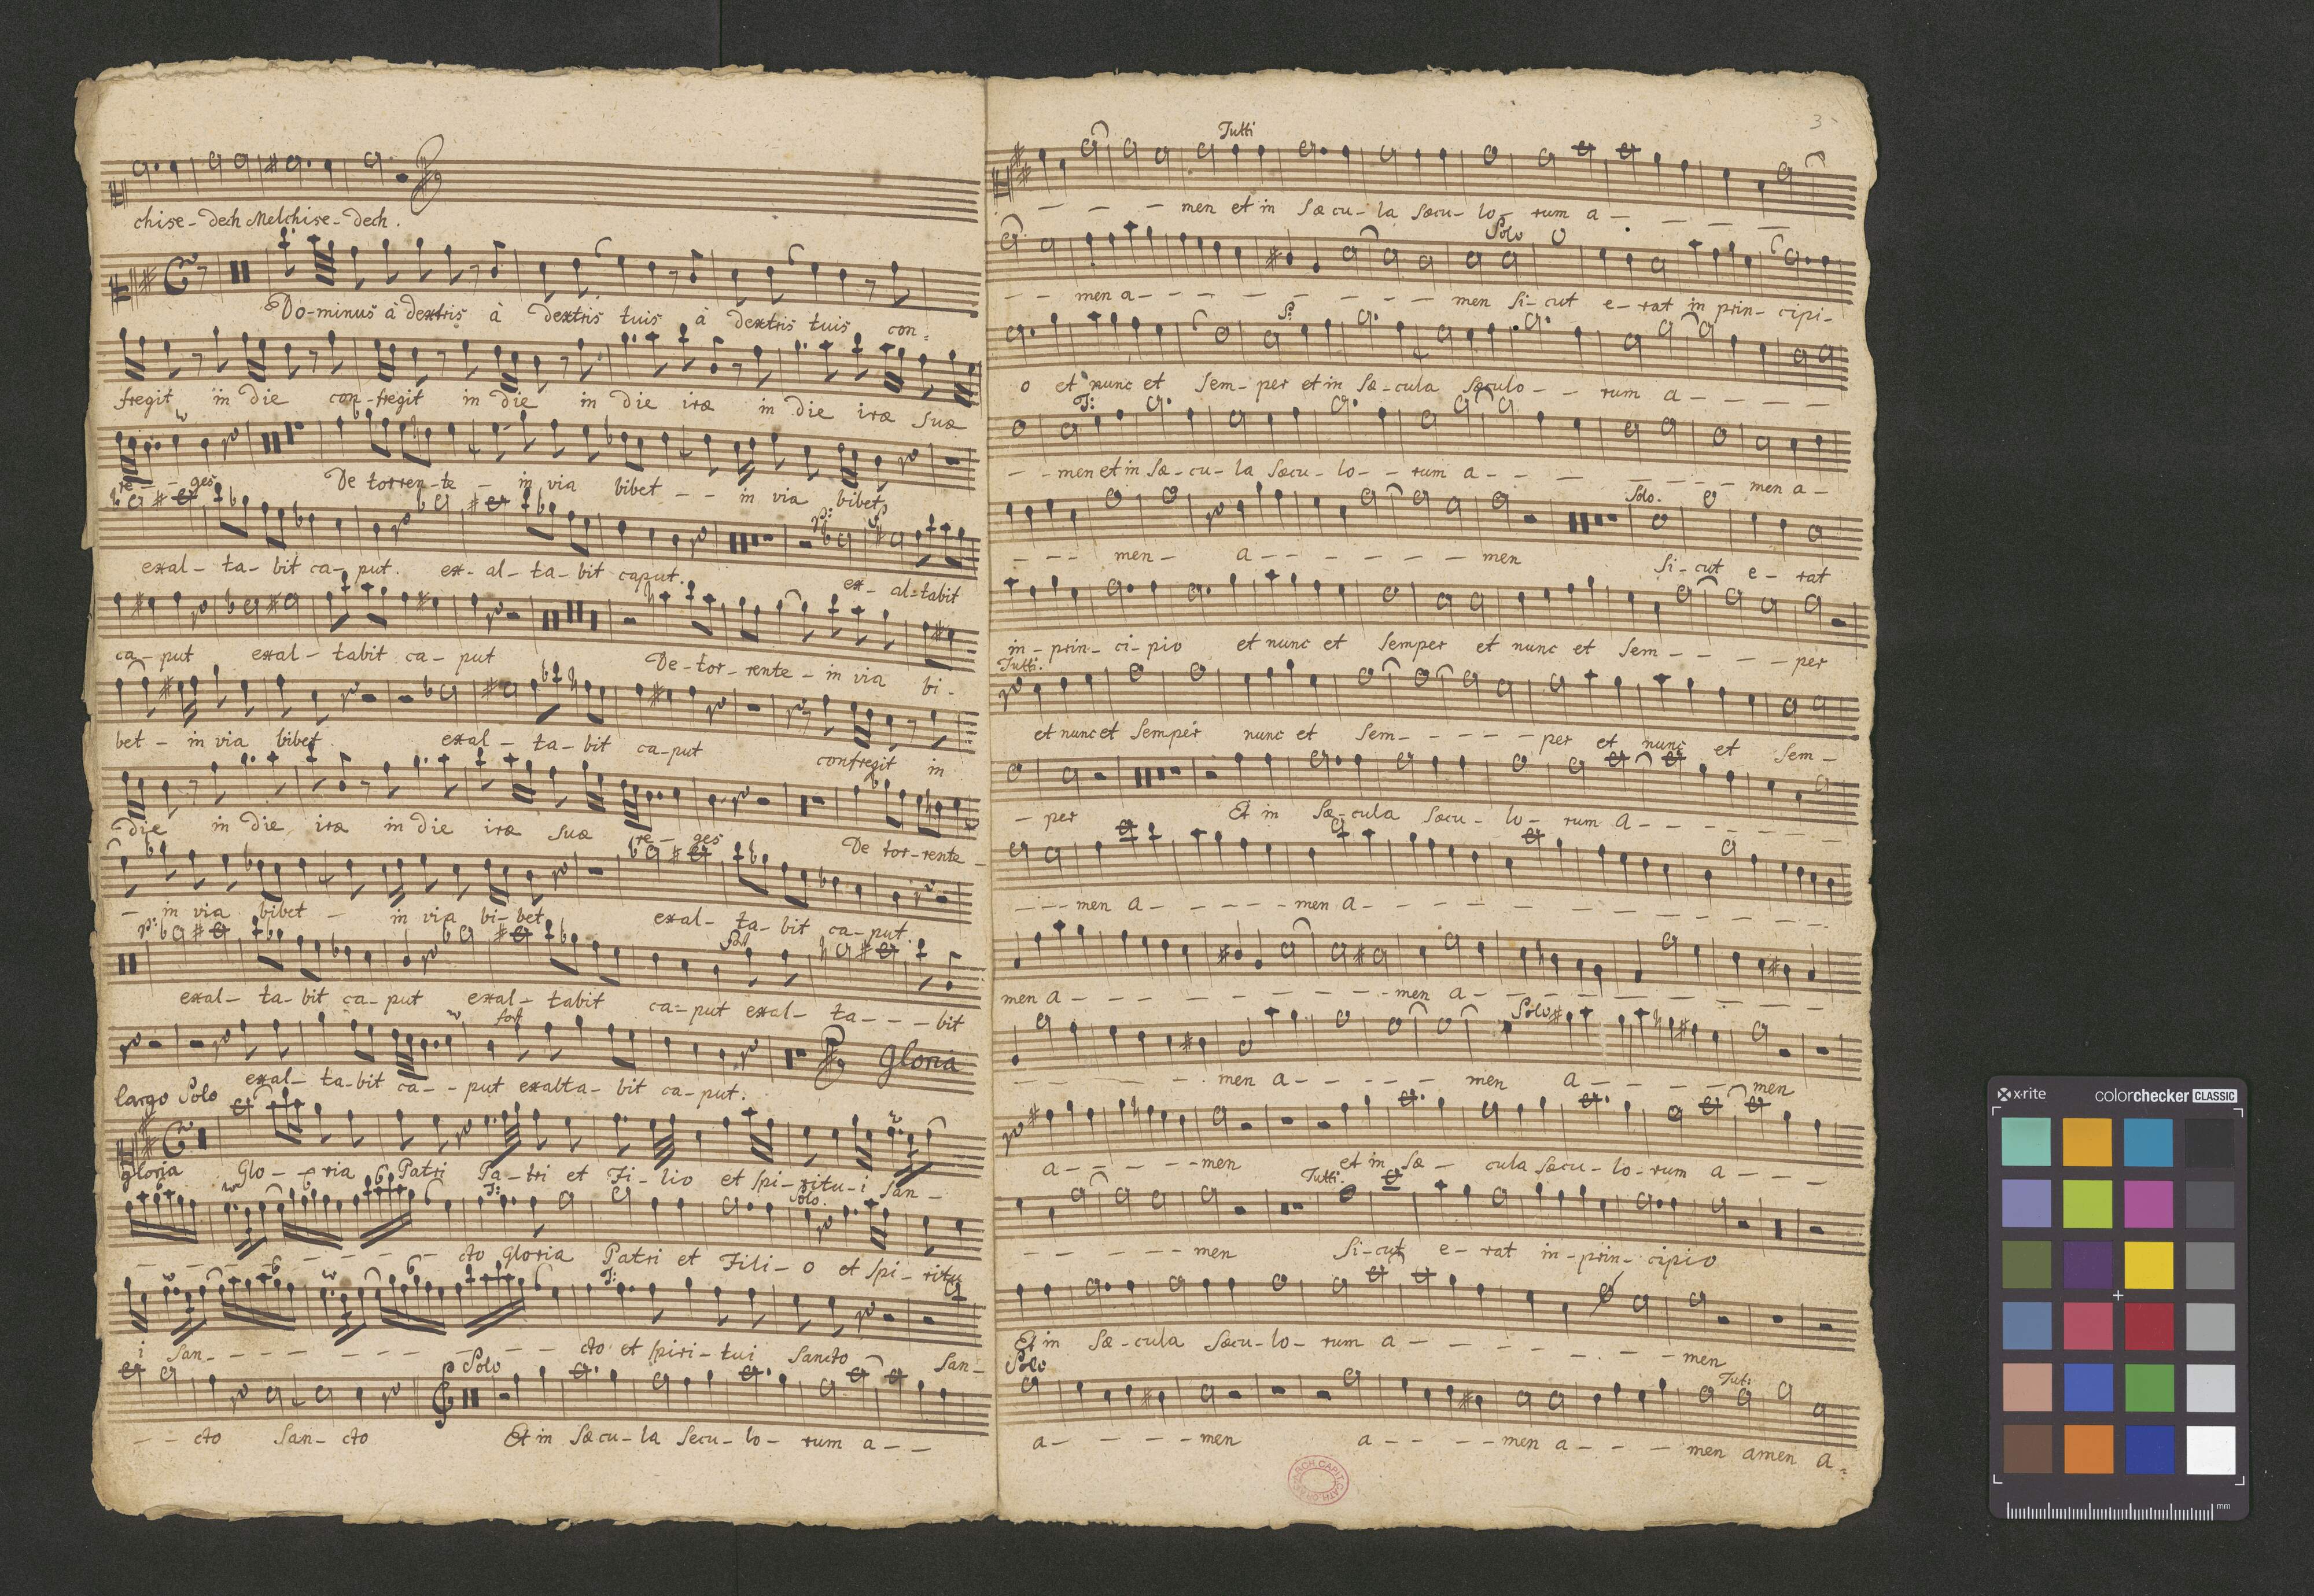 chise- dech Melchise- dech.
Do-minus à dextris à dextris tuis à dextris tuis con:
fregit in die con-fregit in die in die iræ in die iræ Suæ
re - - ges De torren-te - in via bibet - - in via bibet
p: f
exal- ta- bit ca- put. ex- al- ta- bit caput. ex- al-tabit
ca- put exal- tabit ca- put De- tor- rente - in via bi-
bet - in via bibet exal- ta- bit ca-put confregit in
die in die iræ in die iræ Suæ re - ges De tor-rente -
- in via bibet - in via bi-bet exal- ta- bit ca- put.
p:
exal- ta- bit ca- put exal- tabit ca- put exal- ta- - - bit
fort
exal- ta-bit ca- - put exalta- bit ca- put. Gloria
largo Solo
gloria Glo - - ria Patri Pa- tri et Fi- lio et Spi- ritu- i San-
T: Solo.
- - - - - - cto Gloria Patri et Fili- o et Spi- ritu
T:
i San- - - - - - - - - cto et Spiri- tui Sancto San-
Solo
- - cto San- cto Et in Sæcu- la Secu- lo- rum a - -
3
Tutti
- - - men et in Sæcu- la Sæcu- lo- rum a - - -
Solo
- - men a- - - - - - - - men Si- cut e- rat in prin- cipi-
S:
o et nunc et Sem- per et in Sæ- cula Sæculo - - rum a - - - -
T:
- - men et in Sæ- cu- la Sæcu- lo- - rum a - - - - - - men a -
Solo.
- - - men - a - - - - - - men Si- cut e- rat
in- prin- ci- pio et nunc et Semper et nunc et Sem- - - - - per
Tutti.
et nunc et Semper nunc et Sem- - - - - per et nunc et Sem-
- per Et in Sæ- cula Sæcu- lo- rum a - - - - - -
- - - men a- - - - - men a- - - - - - - - - -
men a - - - - - - - - - men a - - - - - - -
Solo
- - - - men a - - - - - men a - - - - men
a- - - - - men et in Sæ- cula Sæcu- lo- rum a - - -
Tutti.
- - - - - men Si- cut e- rat in- prin- cipio
Et in Sæ- cula Sæcu- lo- rum a - - - - - - - men
Solo
Tut:
a- - - - - men a - - - - men a - - - - men amen a-
ARCH. CAPIT. CATH.
x-rite colorchecker CLASSIC
mm